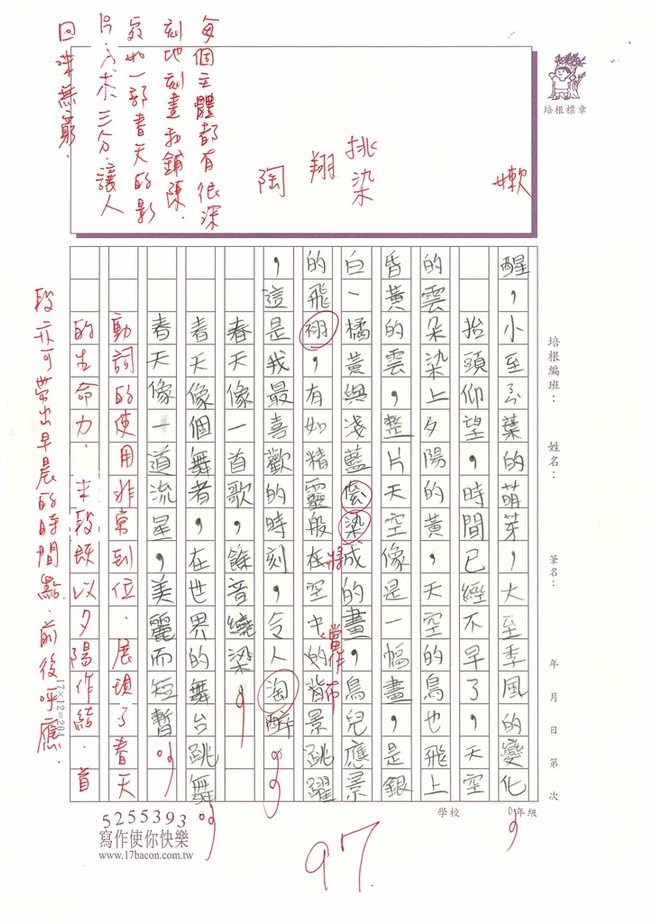 培根標章
嫩
挑染
翔
陶
每個主體都有很深
刻地刻畫和鋪陳.
宛如一部春天的影
片.入木三分.讓人
回味無窮.
培根編班：
姓名：
筆名：
年 月 日 第 次
學校
年級
醒，小至嫩葉的萌芽，大至季風的變化，
抬頭仰望，時間已經不早了，天空
的雲朵染上夕陽的黃，天空的鳥也飛上
昏黃的雲，整片天空像是一幅畫，是銀
白、橘黃與淺藍染成的畫，鳥兒應景
的飛翔，有如精靈般在空中的背景跳躍
，這是我最喜歡的時刻，令人淘醉。
春天像一首歌，餘音繞梁。
春天像個舞者，在世界的舞台跳舞。
春天像一道流星，美麗而短暫。
將
當作
布
動詞的使用非常到位.展現了春天
的生命力.末段既以夕陽作結.首
段亦可帶出早晨的時間點.前後呼應.
17×12=204
5255393
寫作使你快樂
www.17bacon.com.tw
97.